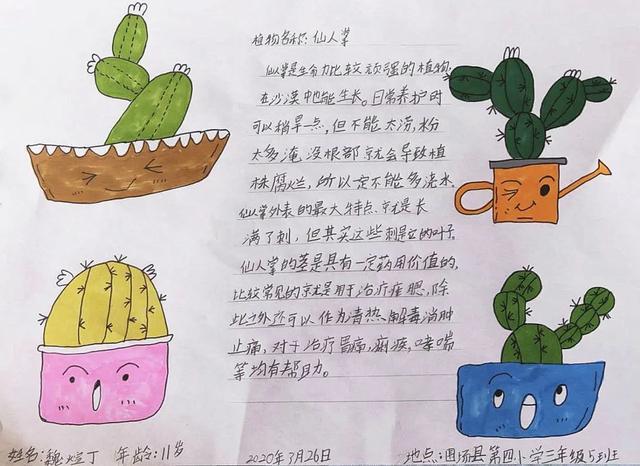 植物名称:仙人掌
仙人掌是生命力比较顽强的植物,
在沙漠中也能生长。日常养护时
可以稍旱一点,但不能太涝,水份
太多淹没根部就会导致植
株腐烂,所以一定不能多浇水.
仙人掌外表的最大特点就是长
满了刺,但其实这些刺是它的叶子.
仙人掌的茎是具有一定药用价值的,
比较常见的就是用于治疗痄腮,除
此之外还可以作为清热、解毒消肿
止痛,对于治疗胃痛,痢疾,哮喘
等均有帮助。
姓名:魏煊丁 年龄:11岁 2020年3月26日 地点:围场县第四小学三年级5班